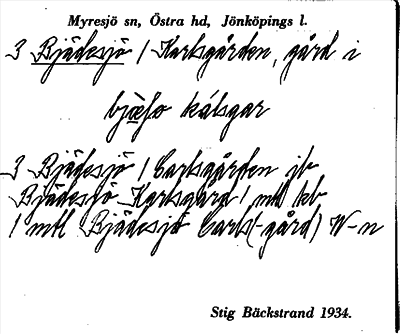 Myresjö sn, Östra hd, Jönköpings l.
3 Bjädesjö / Karlsgården, gård i
bjæsɷ kálsgar
3 Bjädesjö / Carlsgården jb
Bjädesjö Karlsgård 1 mtl kb
1 mtl Bjädesjö Carls(-gård) W-n
Stig Bäckstrand 1934.